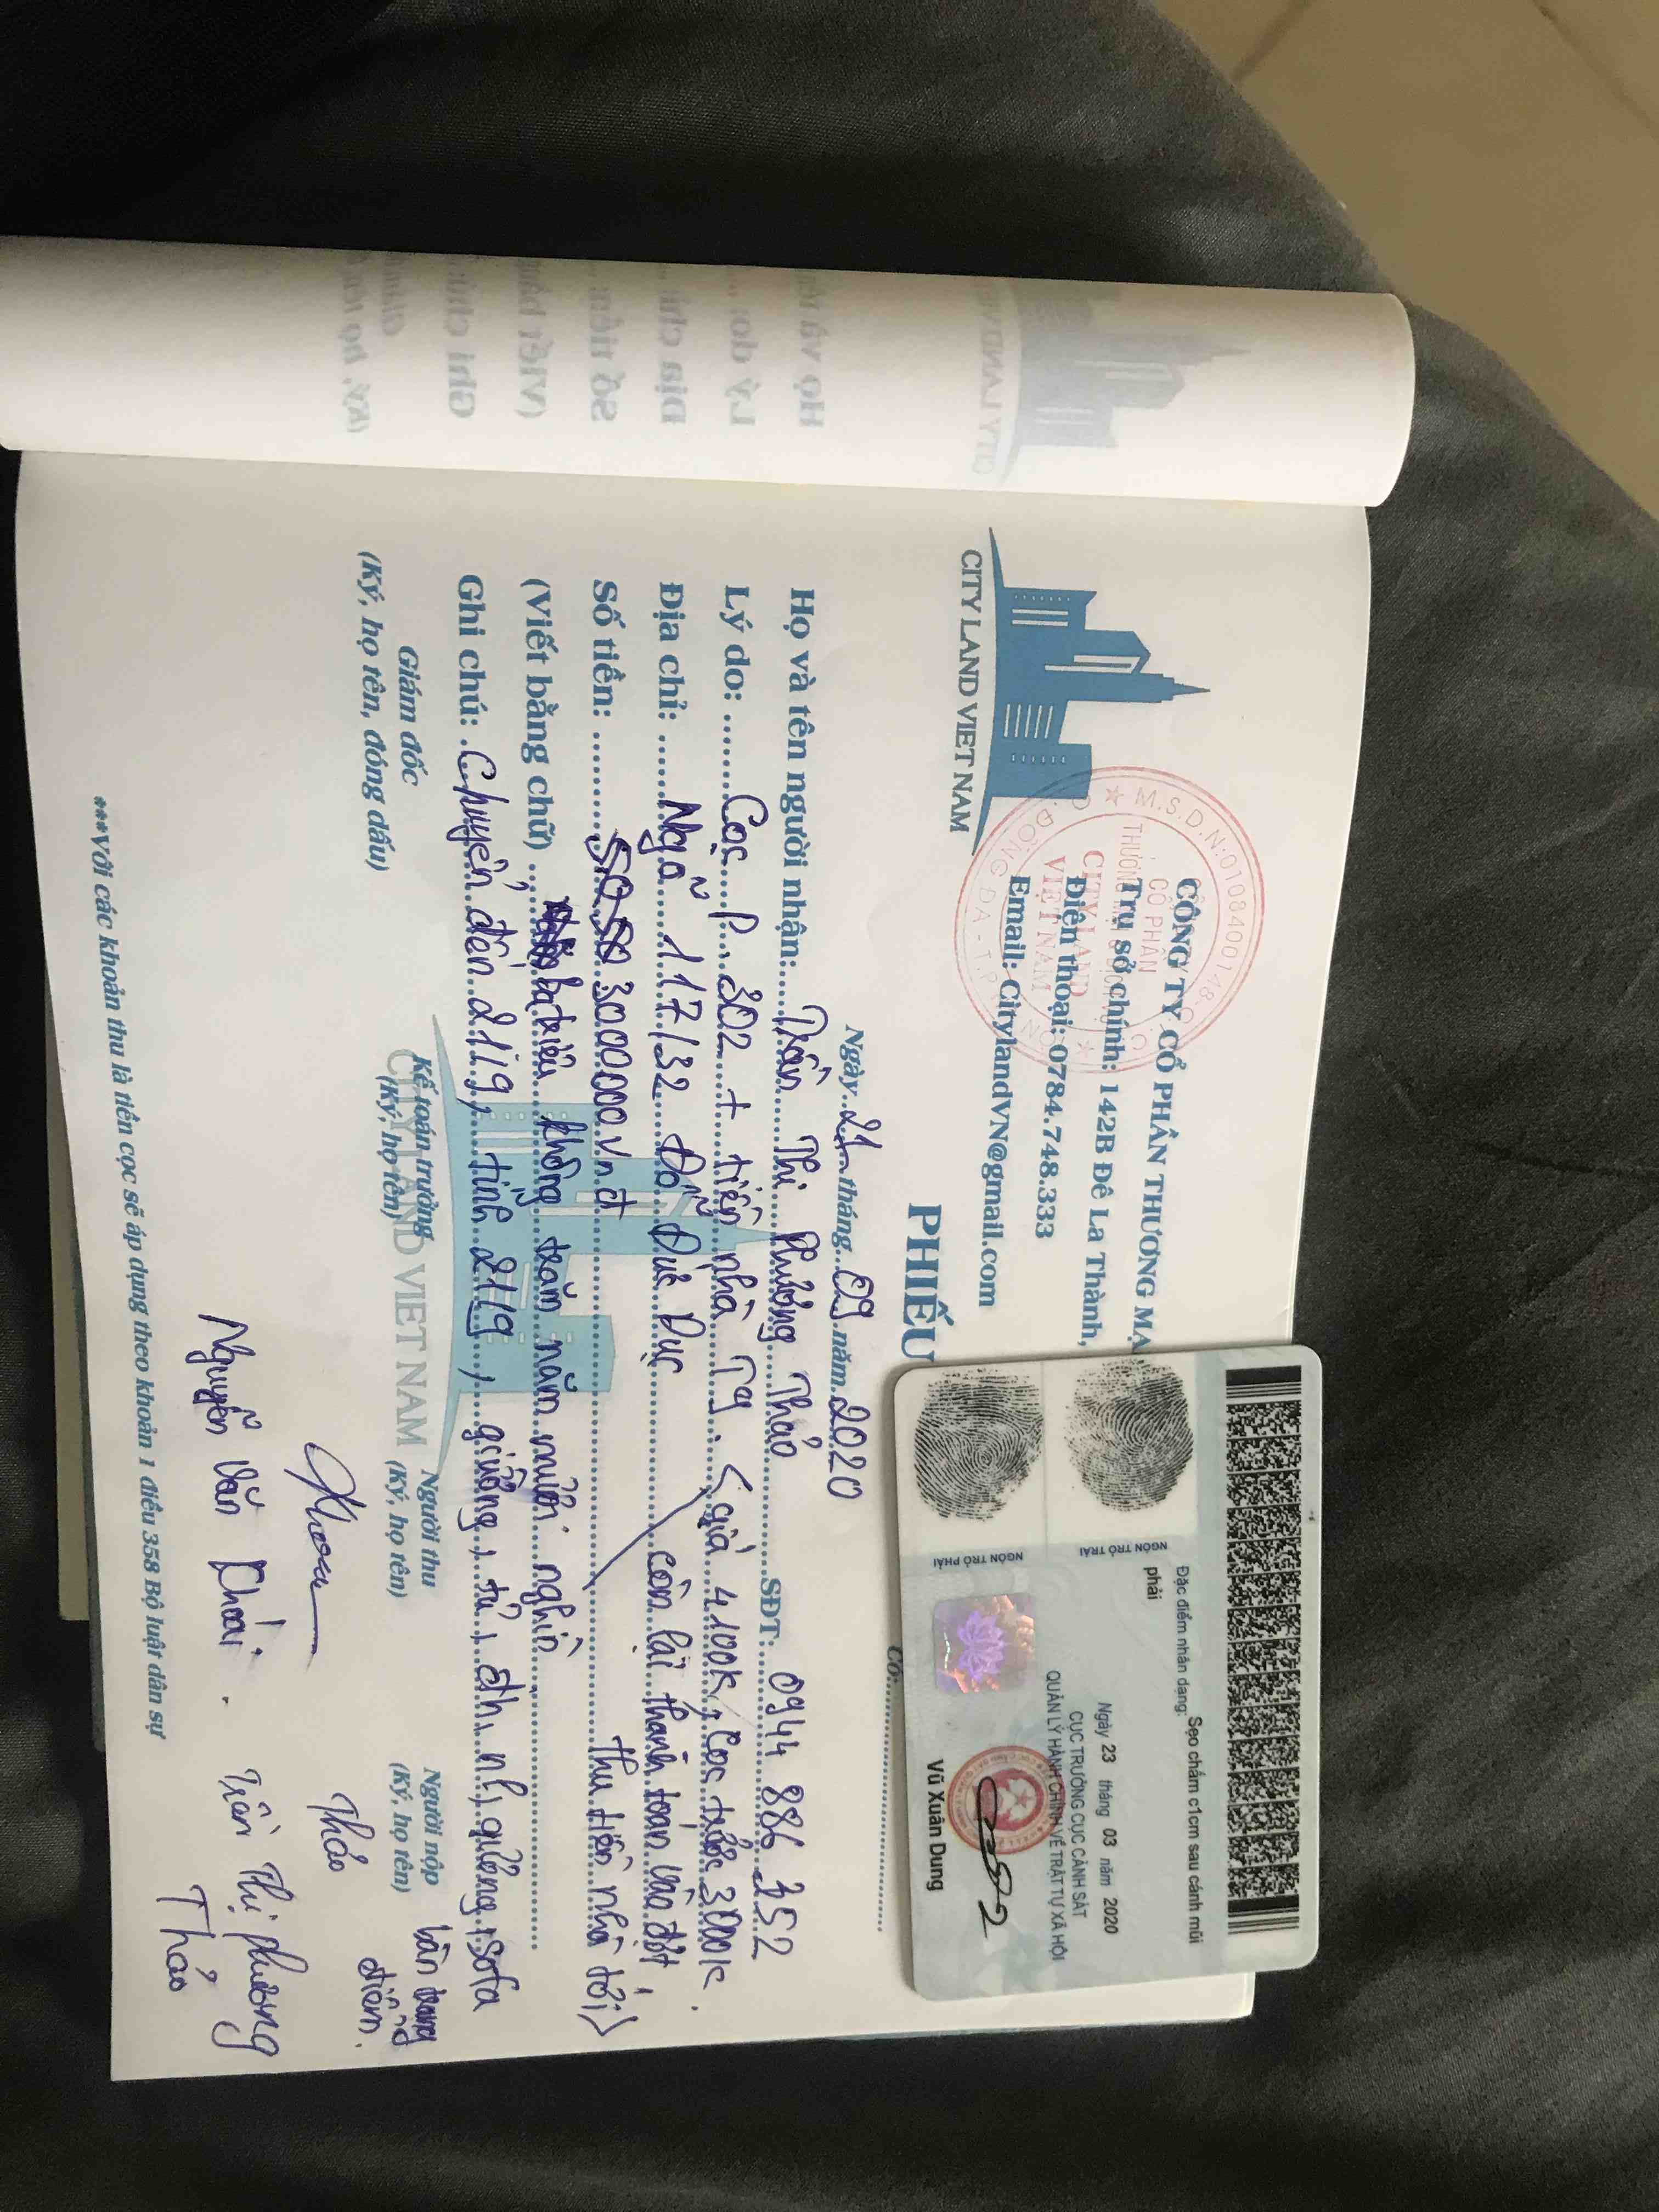 CITY LAND VIET NAM
CÔNG TY CỔ PHẦN THƯƠNG MẠ
Trụ sở chính: 142B Đê La Thành,
Điện thoại: 0784.748.333
Email: CitylandVN@gmail.com
M.S.D.N:0108400148
CỔ PHẦN
CITY LAND
VIỆT NAM
PHIẾU
Ngày 21 tháng 09 năm 2020
Họ và tên người nhận: Trần Thị Phương Thảo SĐT: 0944 886 352
Lý do: Cọc P 302 + tiền nhà T9. < giá 4100k, Cọc trước 3000k.
Địa chỉ: Ngõ 117/32 Đỗ Đức Dục còn lại thanh toán vào đợt
Số tiền: 3000000 vnđ thu tiền nhà tới >
(Viết bằng chữ) ba triệu không trăm năm mươi nghìn
Ghi chú: Chuyển đến 21/9, tính 21/9, giường, tủ, đh, nl, quầng, sofa
Giám đốc
(Ký, họ tên, đóng dấu)
Kế toán trưởng
(Ký, họ tên)
Người thu
(Ký, họ tên)
Người nộp
(Ký, họ tên)
CITY LAND VIET NAM
Nguyễn Văn Khoái.
Thảo
Trần Thị Phương
Thảo
***Với các khoản thu là tiền cọc sẽ áp dụng theo khoản 1 điều 358 Bộ luật dân sự
NGÓN TRỎ TRÁI
NGÓN TRỎ PHẢI
Đặc điểm nhân dạng: Sẹo chấm c1cm sau cánh mũi
phải
Ngày 23 tháng 03 năm 2020
CỤC TRƯỞNG CỤC CẢNH SÁT
QUẢN LÝ HÀNH CHÍNH VỀ TRẬT TỰ XÃ HỘI
Vũ Xuân Dung